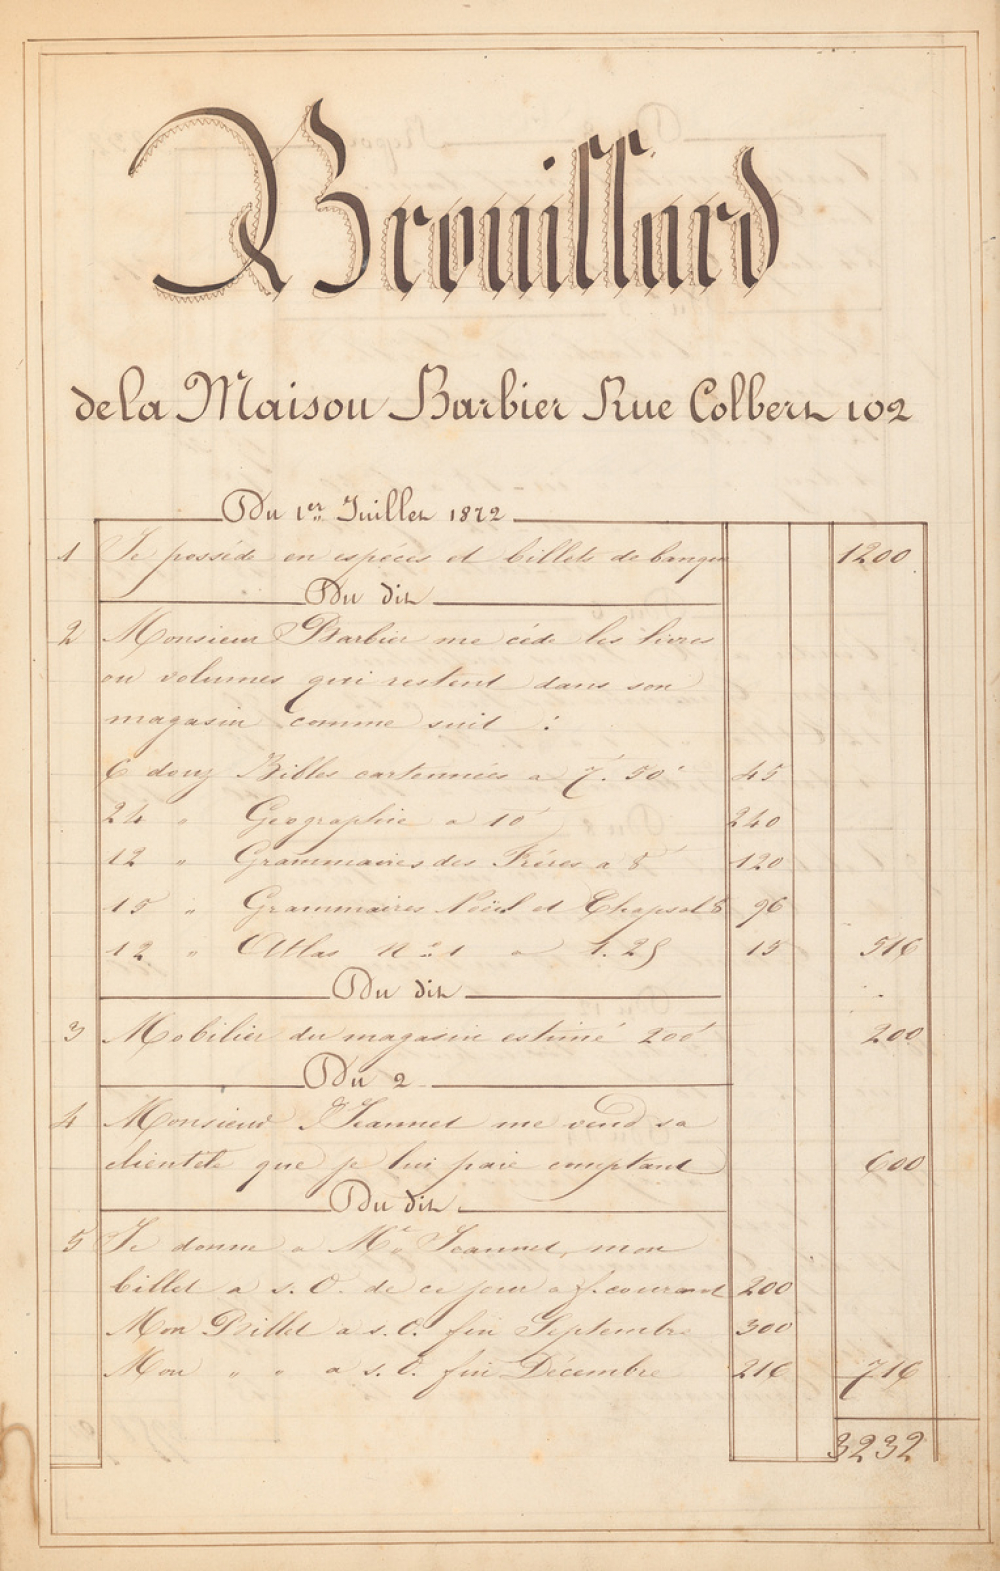 Brouillard
de la Maison Barbier Rue Colbert 102
Du 1er Juillet 1872
1 Je possède en espèces et billets de banque 1200
Du dit
2 Monsieur Barbier me cède les livres
ou volumes qui restent dans son
magasin comme suit :
6 douz Bibles cartonnées a 7. 50 45
24 " Géographie a 10 240
12 " Grammaires des Frères a 120
15 " Grammaires Noël et Chapsal 96
12 " Atlas No 1 a 1. 25 15 516
Du dit
3 Mobilier du magasin estimé 200 200
Du 2
4 Monsieur Jeannet me vend sa
clientèle que je lui paie comptant 600
Du dit
5 Je donne a Mr Jeannet, mon
billet a s. O. de ce jour a f. courant 200
Mon Billet a s. O. fin Septembre 300
Mon " " a s. O. fin Décembre 216 716
3232